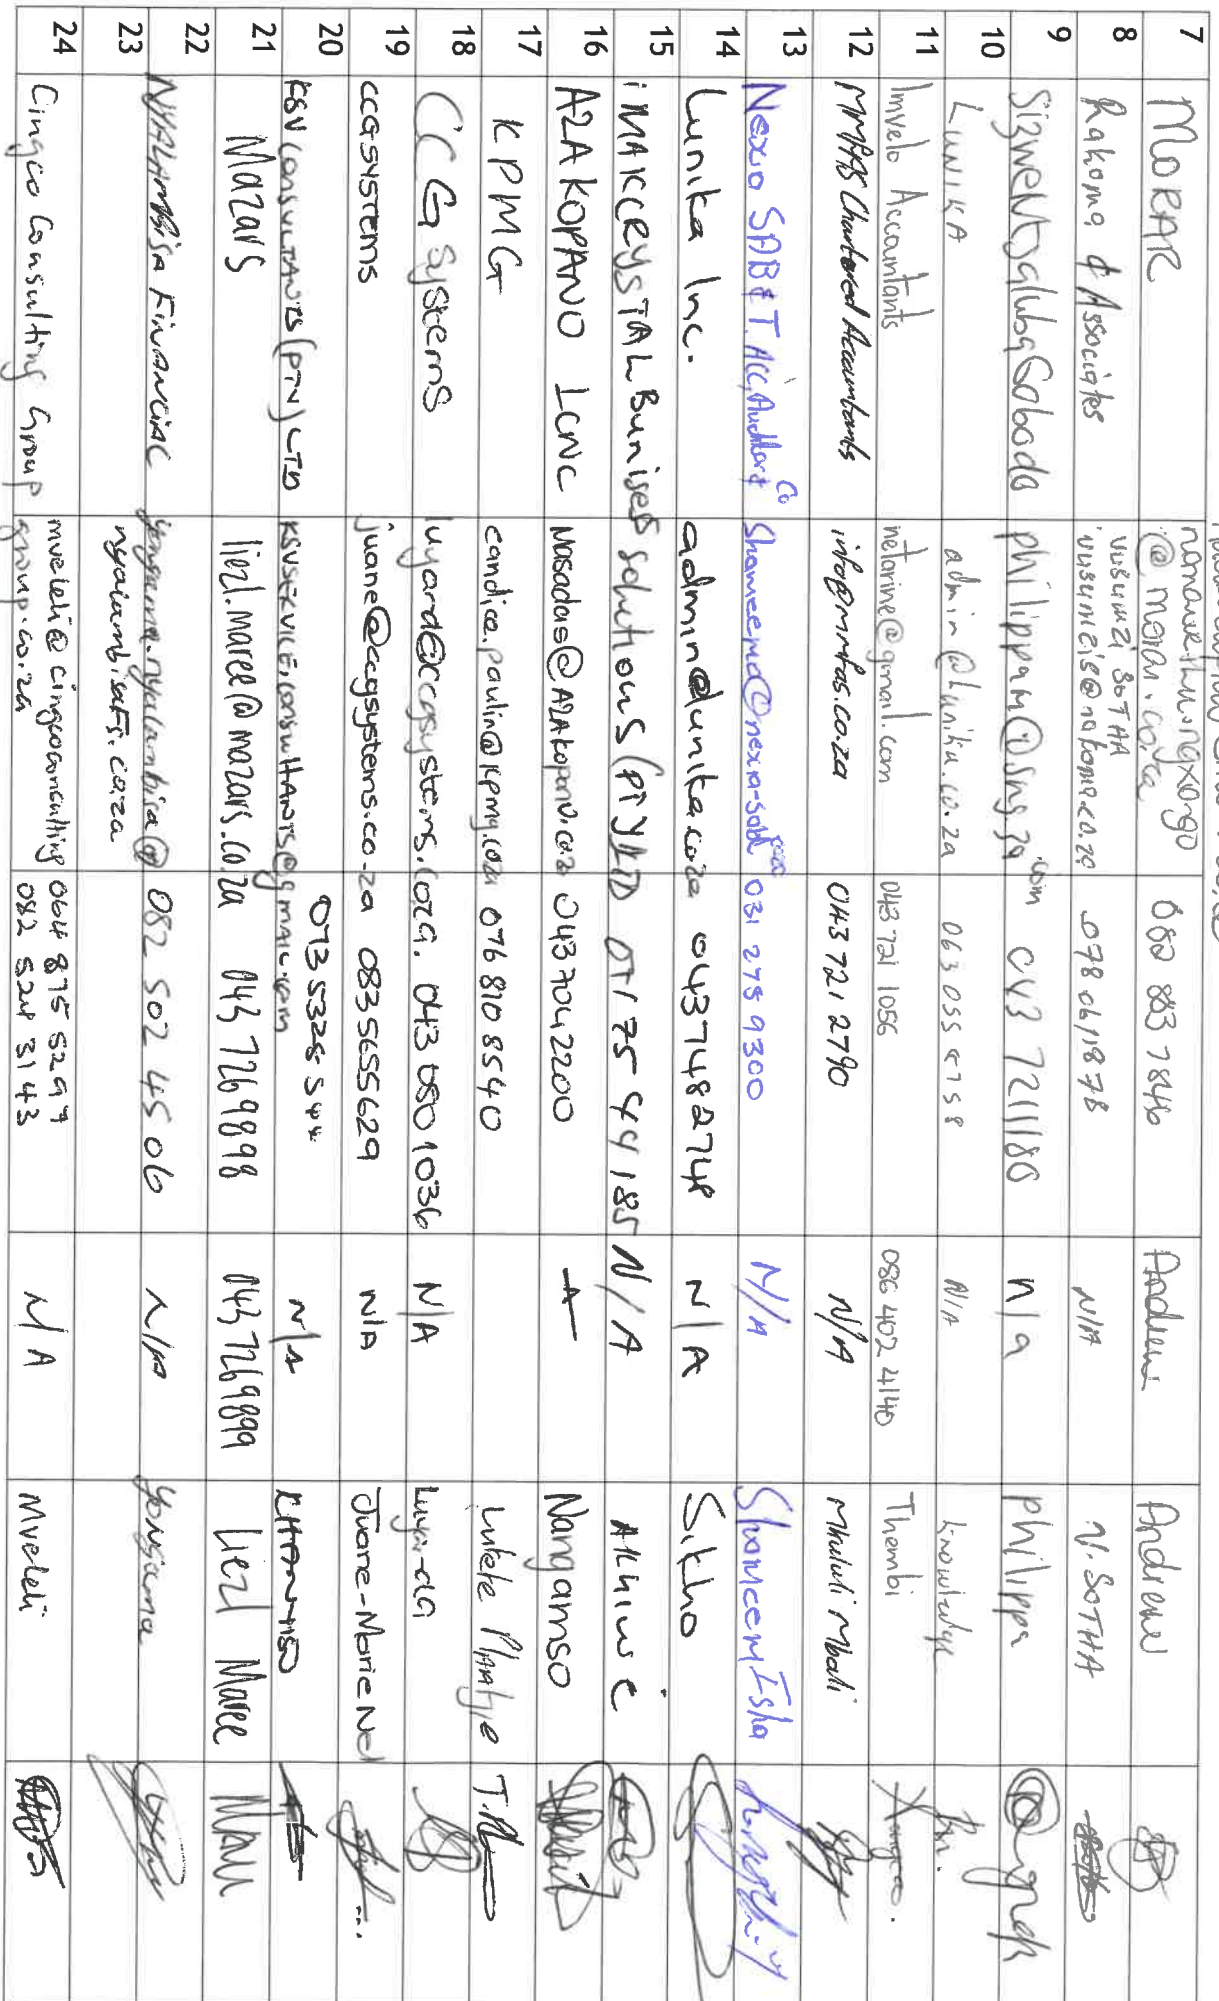 7 MORAR nomawethu.ngxongo @moran.co.za 082 883 7846 Andrew Andrew
8 Rakoma & Associates vusumzi SOTHA vusumzis@rakoma.co.za 078 0611878 N/A V. SOTHA
9 SizweNtsalubaGobodo philippam@sng.za.com 043 7211180 n/a Philippa
10 LUNIKA admin@lunika.co.za N/A Knowledge
11 Imvelo Accountants netarine@gmail.com 043 721 1056 086 402 4140 Thembi
12 MMPAS Chartered Accountants info@mmpas.co.za 043 721 2790 N/A Mbali
13 Nexia SAB&T Shameema@nexia-sabt 031 275 9300 N/A Shameem Isha
14 Lunika Inc. admin@lunika.co.za 0437482748 N/A Sitho
15 iMAICCRYSTAL Bunises solutions (PTY)LTD 071 75 44 185 N/A
16 A2AKOPANO ICNC Masadas@A2Akopano.co.za 0437042200 Nangamso
17 KPMG candice.paulin@kpmg.co.za 076 810 8540 Lukele
18 CCG Systems luyanda@ccgsystems.co.za. 043 050 1036 N/A Luyanda
19 CCGSYSTEMS juane@ccgsystems.co.za 0835655629 N/A Juane-Marie Nel
20 KSV CONSULTANTS (PTY) LTD KSVSERVICE.CONSULTANTS@gmail.com N/A
21 Mazars liezl.maree@mazars.co.za 043 7269898 043 7269899 Liezl Maree
22 NYALAMBISA FINANCIAL yongama.nyalambisa@ 082 502 4506 N/A Yongama
23 nyalambisafs.co.za
24 Cingco Consulting Group mveleli@cingcoconsulting group.co.za 064 875 5297 082 524 3143 N/A Mveleli